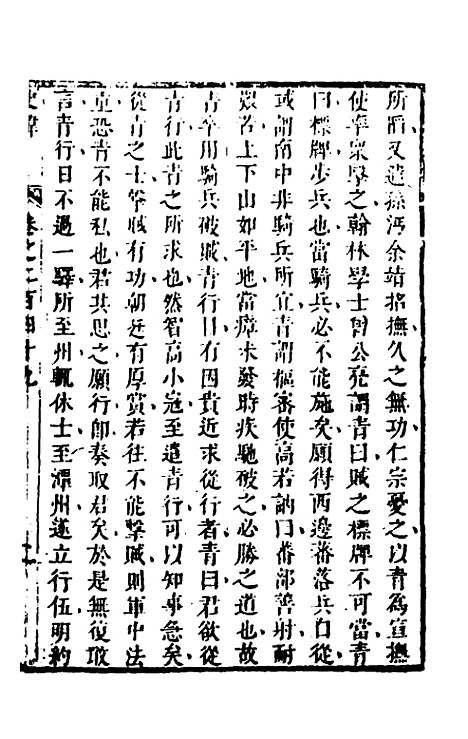 所蹈又遣孫沔余靖招撫久之無功仁宗憂之以青為宣撫
使率衆擊之翰林學士曾公亮謂青曰賊之標牌不可當青
曰標牌步兵也當騎兵必不能施矣願得西邊蕃落兵自從
或謂南中非騎兵所宜青謂樞密使高若訥曰蕃部善射耐
艱苦上下山如平地當瘴未發時疾馳破之必勝之道也故
青卒用騎兵破賊青行日有因貴近求從行者青曰君欲從
青行此青之所求也然智高小寇至遣青行可以知事急矣
從青之士擊賊有功朝廷有厚賞若往不能擊賊則軍中法
重恐青不能私也君其思之願行卽奏取君矣於是無復敢
言青行日不過一驛所至州輒休士至潭州遂立行伍明約
史緯 卷之二百四十九